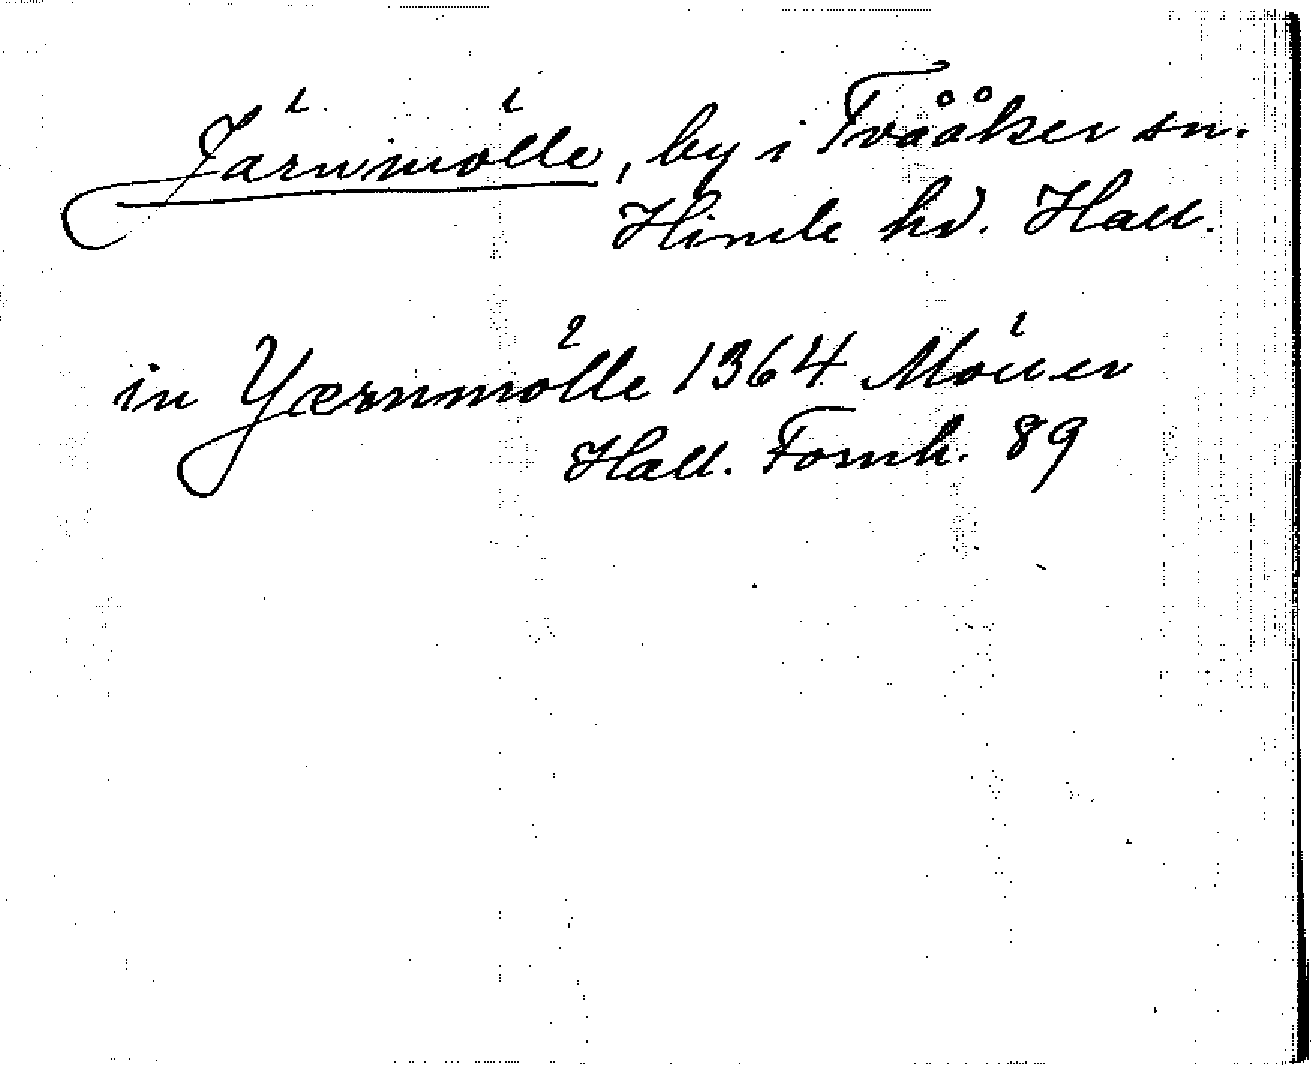 Järnmölle, by i Tvååker sn.
Himle hd. Hall.
in Yærnmölle 1364 Möller
Hall. Fornh. 89